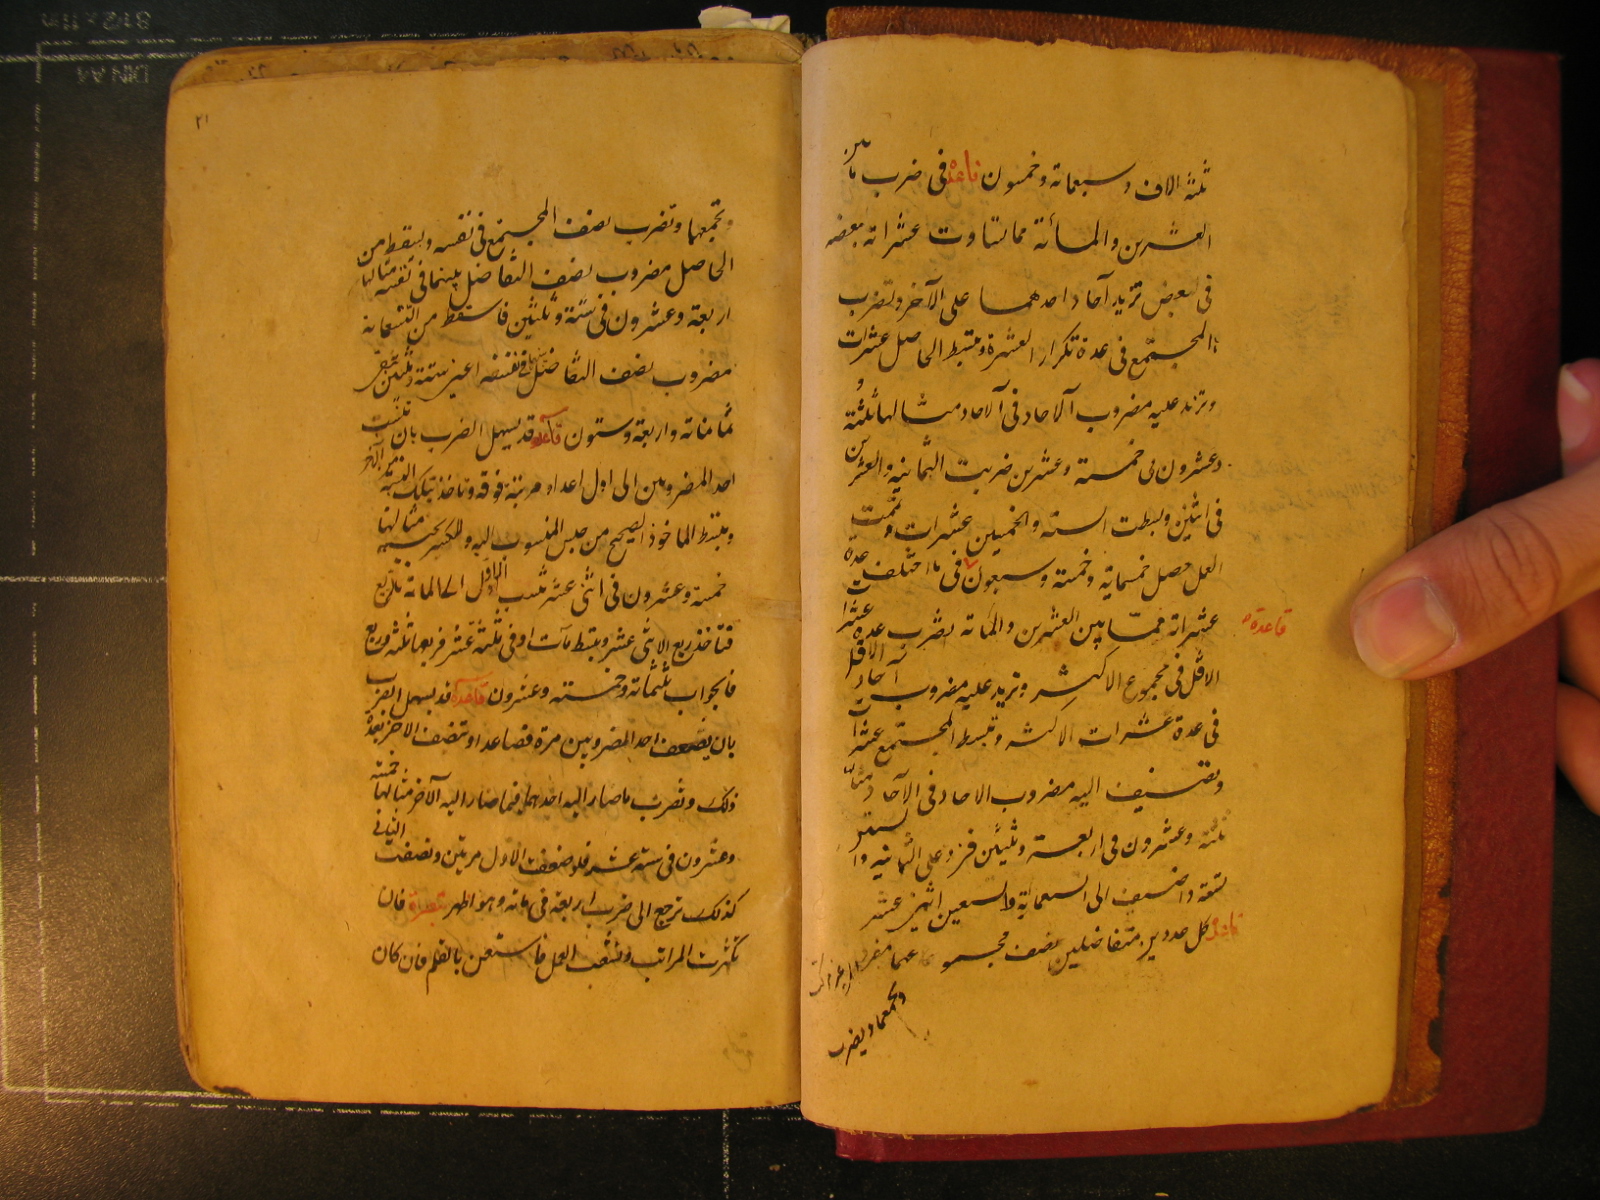 ثلثة الاف و سبعمائة وخمسون قاعدة فى ضرب ما بين
العشرين والمائة مما تساوت عشراته بعضه
فى بعض تزيد آحاد احدهما على الآخر وتضرب
المجتمع فى عدة تكرار العشرة وتبسط الحاصل عشرات
وتزيد عليه مضروب الآحاد فى الآحاد مثالها ثلثة
وعشرون فى خمسة وعشرين ضربت الثمانية والعشرين
فى اثنين وبسطت الستة والخمسين عشرات وتممت
العمل حصل خمسمائة وخمسة وسبعون فى ما اختلف عدة
عشراته مما بين العشرين والمائة يضرب عدة عشرات
قاعدة
الاقل فى مجموع الاكثر وتزيد عليه مضروب آحاد الاقل
فى عدة عشرات الاكثر وتبسط المجتمع عشرات
وتضيف اليه مضروب الاحاد فى الآحاد مثالها
ثلثة وعشرون فى اربعة وثلثين فزد على الثمانية وا لستين
تسعة واضيف الى السبعمائة والسبعين اثنى عشر
قاعدة كل عددين متفاضلين نصف مجموعهما مفرد
وتجمعهما وتضرب
٢١
وتجمعهما وتضرب نصف المجتمع فى نفسه ويسقط من
الحاصل مضروب نصف التفاضل بينهما فى نفسه مثالها
اربعة وعشرون فى ستة وثلثين فاسقط من التسعمائة
مضروب نصف التفاضل فى نفسه اعنى ستة وثلثين يبقى
ثمانمائة واربعة وستون قاعدة قد يسهل الضرب بان تنسب
احد المضروبين الى اول اعداد مرتبة فوقه وتاخذ بتلك النسبة من الآخر
وتبسط الماخوذ الصحيح من جنس المنسوب اليه والكسر بحسبه مثالها
خمسة وعشرون فى اثنى عشر تنسب الاول الى المائة بالربع
فتاخذ ربع الاثنى عشر وتبسط مآت او فى ثلثة عشر فربعها ثلثة وربع
فالجواب ثلثمائة وخمسة وعشرون قاعدة قد يسهل الضرب
بان يضعف احد المضروبين مرة فصاعدا وتنصف الاخر بعدة
ذلك وتضرب ما صار اليه احدهما فيما صار اليه الآخر مثالها خمسة
وعشرون فى ستة عشر فلو ضعفت الاول مرتين ونصفت الثانى
كذلك ترجع الى ضرب اربعة فى مائة وهو اظهر تبصرة فان
تكثرت المراتب وتشعب العمل فاستعن بالقلم فان كان